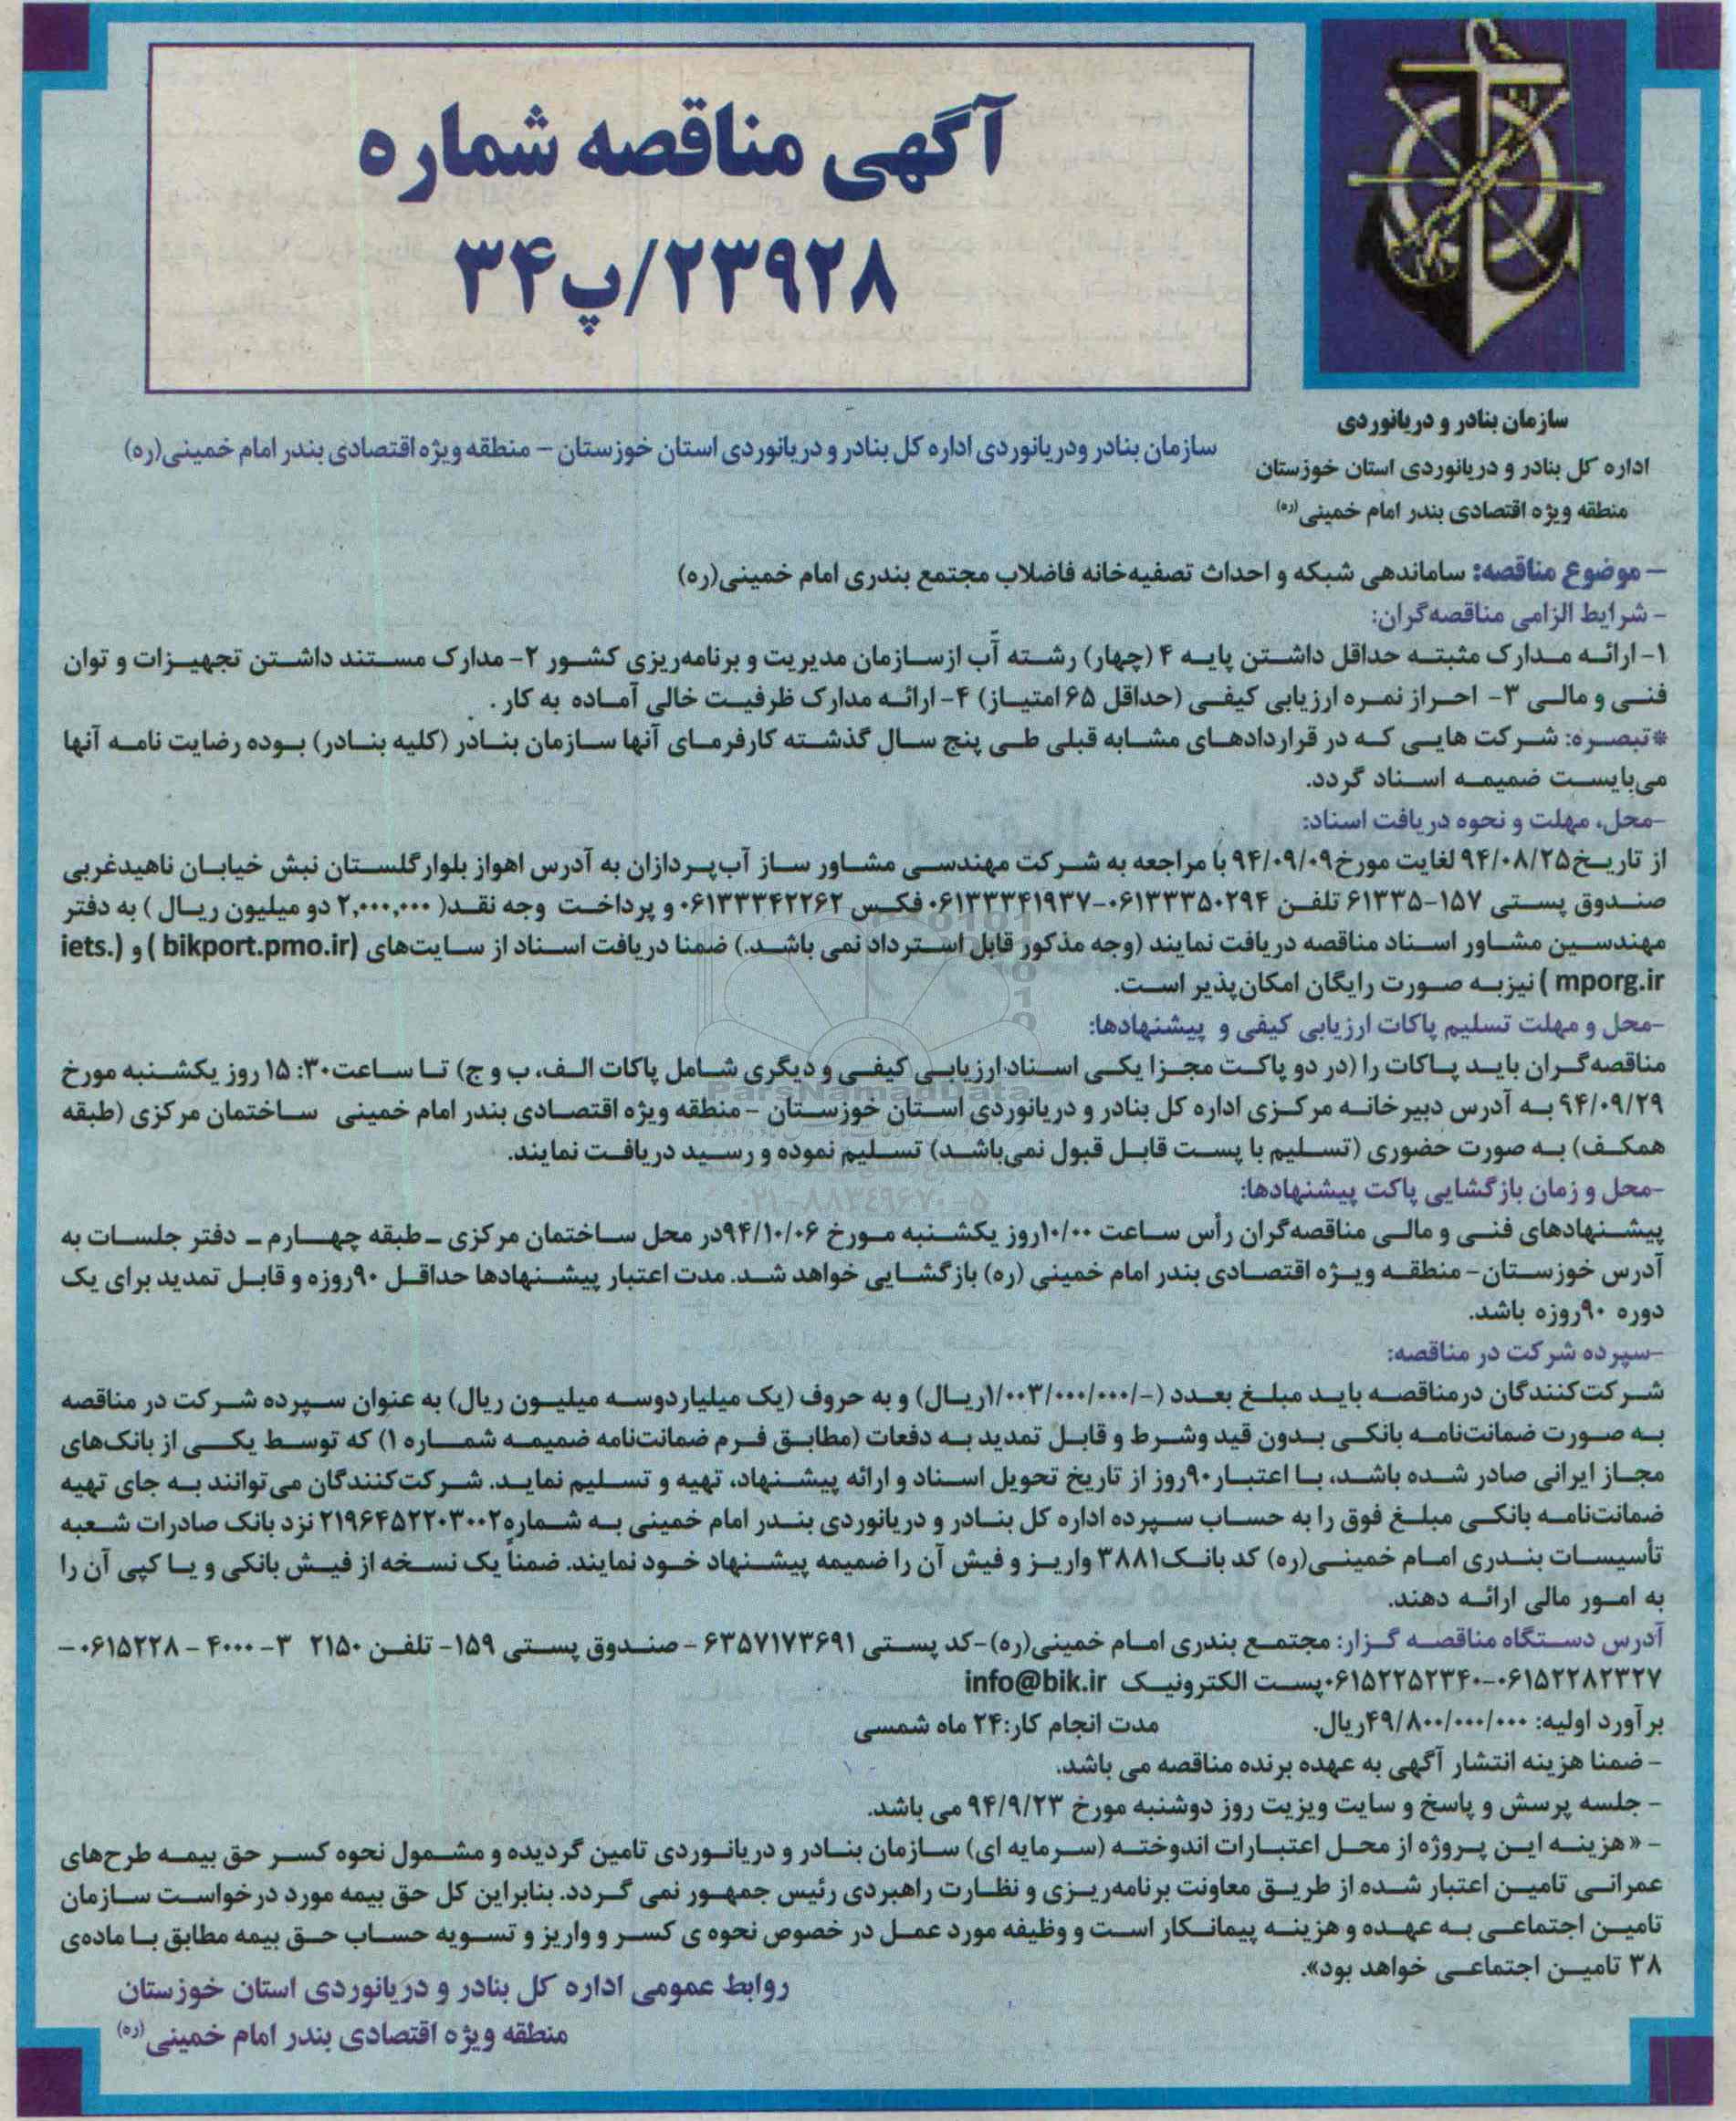 آگهی مناقصه شماره
۲۳۹۲۸/پ۳۴
سازمان بنادر و دریانوردی
اداره کل بنادر و دریانوردی استان خوزستان
منطقه ویژه اقتصادی بندر امام خمینی (ره)
سازمان بنادر ودریانوردی اداره کل بنادر و دریانوردی استان خوزستان – منطقه ویژه اقتصادی بندر امام خمینی(ره)
– موضوع مناقصه: ساماندهی شبکه و احداث تصفیه‌خانه فاضلاب مجتمع بندری امام خمینی(ره)
- شرایط الزامی مناقصه‌گران:
۱- ارائه مدارک مثبته حداقل داشتن پایه ۴ (چهار) رشته آب ازسازمان مدیریت و برنامه‌ریزی کشور ۲- مدارک مستند داشتن تجهیزات و توان
فنی و مالی ۳- احراز نمره ارزیابی کیفی (حداقل ۶۵ امتیاز) ۴- ارائه مدارک ظرفیت خالی آماده به کار .
*تبصره: شرکت هایی که در قراردادهای مشابه قبلی طی پنج سال گذشته کارفرمای آنها سازمان بنادر (کلیه بنادر) بوده رضایت نامه آنها
می‌بایست ضمیمه اسناد گردد.
-محل، مهلت و نحوه دریافت اسناد:
از تاریخ۹۴/۰۸/۲۵ لغایت مورخ۹۴/۰۹/۰۹ با مراجعه به شرکت مهندسی مشاور ساز آب‌پردازان به آدرس اهواز بلوار گلستان نبش خیابان ناهیدغربی
صندوق پستی ۱۵۷-۶۱۳۳۵ تلفن ۰۶۱۳۳۳۵۰۲۹۴-۰۶۱۳۳۳۴۱۹۳۷ فکس ۰۶۱۳۳۳۴۲۲۶۲ و پرداخت وجه نقد( ۲,۰۰۰,۰۰۰ دو میلیون ریال ) به دفتر
مهندسین مشاور اسناد مناقصه دریافت نمایند (وجه مذکور قابل استرداد نمی باشد.) ضمنا دریافت اسناد از سایت‌های (bikport.pmo.ir ) و (iets.
mporg.ir ) نیزبه صورت رایگان امکان‌پذیر است.
-محل و مهلت تسلیم پاکات ارزیابی کیفی و پیشنهادها:
مناقصه‌گران باید پاکات را (در دو پاکت مجزا یکی اسناد ارزیابی کیفی و دیگری شامل پاکات الف، ب و ج) تا ساعت ۱۵:۳۰ روز یکشنبه مورخ
۹۴/۰۹/۲۹ به آدرس دبیرخانه مرکزی اداره کل بنادر و دریانوردی استان خوزستان – منطقه ویژه اقتصادی بندر امام خمینی ساختمان مرکزی (طبقه
همکف) به صورت حضوری (تسلیم با پست قابل قبول نمی‌باشد) تسلیم نموده و رسید دریافت نمایند.
ParsNamadData
۰۲۱-۸۸۳۴۹۶۷۰-۵
-محل و زمان بازگشایی پاکت پیشنهادها:
پیشنهادهای فنی و مالی مناقصه‌گران رأس ساعت ۱۰/۰۰روز یکشنبه مورخ ۹۴/۱۰/۰۶در محل ساختمان مرکزی – طبقه چهارم – دفتر جلسات به
آدرس خوزستان - منطقه ویژه اقتصادی بندر امام خمینی (ره) بازگشایی خواهد شد. مدت اعتبار پیشنهادها حداقل ۹۰روزه و قابل تمدید برای یک
دوره ۹۰روزه باشد.
-سپرده شرکت در مناقصه:
شرکت‌کنندگان درمناقصه باید مبلغ بعدد (-/۱/۰۰۳/۰۰۰/۰۰۰ریال) و به حروف (یک میلیاردوسه میلیون ریال) به عنوان سپرده شرکت در مناقصه
به صورت ضمانت‌نامه بانکی بدون قید وشرط و قابل تمدید به دفعات (مطابق فرم ضمانت‌نامه ضمیمه شماره ۱) که توسط یکی از بانک‌های
مجاز ایرانی صادر شده باشد، با اعتبار۹۰روز از تاریخ تحویل اسناد و ارائه پیشنهاد، تهیه و تسلیم نماید. شرکت‌کنندگان می‌توانند به جای تهیه
ضمانت‌نامه بانکی مبلغ فوق را به حساب سپرده اداره کل بنادر و دریانوردی بندر امام خمینی به شماره۲۱۹۶۴۵۲۲۰۳۰۰۲ نزد بانک صادرات شعبه
تأسیسات بندری امام خمینی(ره) کد بانک۳۸۸۱ واریز و فیش آن را ضمیمه پیشنهاد خود نمایند. ضمناً یک نسخه از فیش بانکی و یا کپی آن را
به امور مالی ارائه دهند.
آدرس دستگاه مناقصه گزار: مجتمع بندری امام خمینی(ره)-کد پستی ۶۳۵۷۱۷۳۶۹۱ - صندوق پستی ۱۵۹- تلفن ۲۱۵۰ ۳- ۴۰۰۰ - ۰۶۱۵۲۲۸ -
۰۶۱۵۲۲۸۲۳۲۷-۰۶۱۵۲۲۵۲۳۴۰پست الکترونیک info@bik.ir
برآورد اولیه: ۴۹/۸۰۰/۰۰۰/۰۰۰ریال. مدت انجام کار:۲۴ ماه شمسی
- ضمنا هزینه انتشار آگهی به عهده برنده مناقصه می باشد.
- جلسه پرسش و پاسخ و سایت ویزیت روز دوشنبه مورخ ۹۴/۹/۲۳ می باشد.
- «هزینه این پروژه از محل اعتبارات اندوخته (سرمایه ای) سازمان بنادر و دریانوردی تامین گردیده و مشمول نحوه کسر حق بیمه طرح‌های
عمرانی تامین اعتبار شده از طریق معاونت برنامه‌ریزی و نظارت راهبردی رئیس جمهور نمی گردد. بنابراین کل حق بیمه مورد درخواست سازمان
تامین اجتماعی به عهده و هزینه پیمانکار است و وظیفه مورد عمل در خصوص نحوه ی کسر و واریز و تسویه حساب حق بیمه مطابق با ماده‌ی
۳۸ تامین اجتماعی خواهد بود».
روابط عمومی اداره کل بنادر و دریانوردی استان خوزستان
منطقه ویژه اقتصادی بندر امام خمینی (ره)